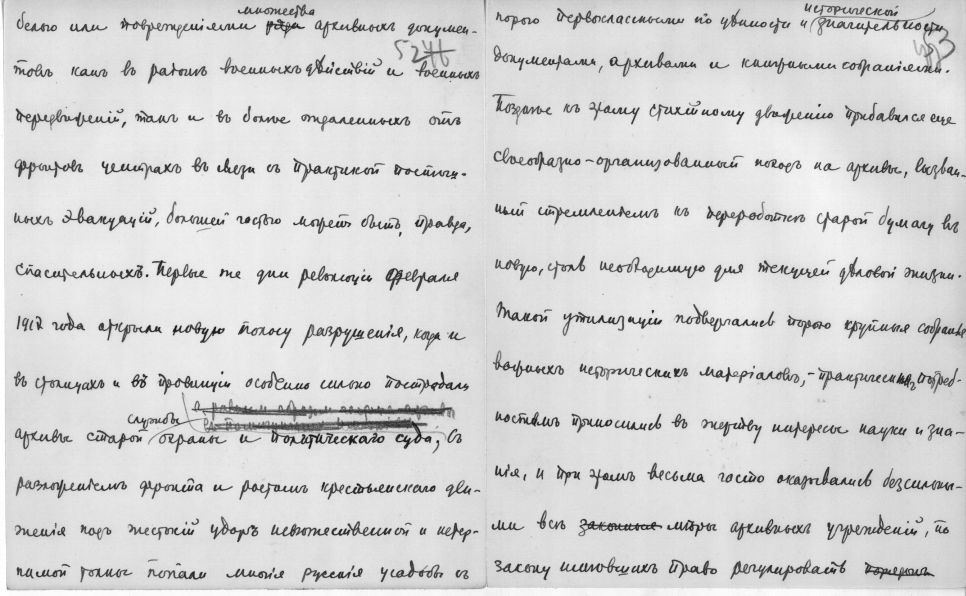 множества
белою или повреждениями архивныхъ докумен-
5246
товъ какъ въ районѣ военныхъ дѣйствій и военныхъ
передвиженій, такъ и въ болѣе отдаленныхъ отъ
фронтовъ центрахъ въ связи съ практикой поспѣш-
ныхъ эвакуацій, большей частью можетъ быть, правда,
спасительныхъ. Первые же дни революціи февраля
1917 года открыли новую полосу разрушенія, когда и
въ столицахъ и въ провинціи особенно сильно пострадали
службы
архивы старой охраны и политическаго суда; съ
разложеніемъ фронта и ростомъ крестьянскаго дви-
женія подъ жестокій ударъ невѣжественной и нетер-
пимой толпы попали многія русскія усадьбы съ
исторической
порою первоклассными по цѣнности и значительности
документами, архивами и книжными собраніями.
Позднѣе къ этому стихійному движенію прибавился еще
своеобразно-организованный походъ на архивы, вызван-
ный стремленіемъ къ переработкѣ старой бумаги въ
новую, столь необходимую для текущей дѣловой жизни.
Такой утилизаціи подвергались порою крупныя собранія
важныхъ историческихъ матеріаловъ, - практическимъ потреб-
ностямъ приносились въ жертву интересы науки и зна-
нія, и при этомъ весьма часто оказывались безсильны-
ми всѣ законныя мѣры архивныхъ учрежденій, по
закону имѣвшихъ право регулировать порядокъ